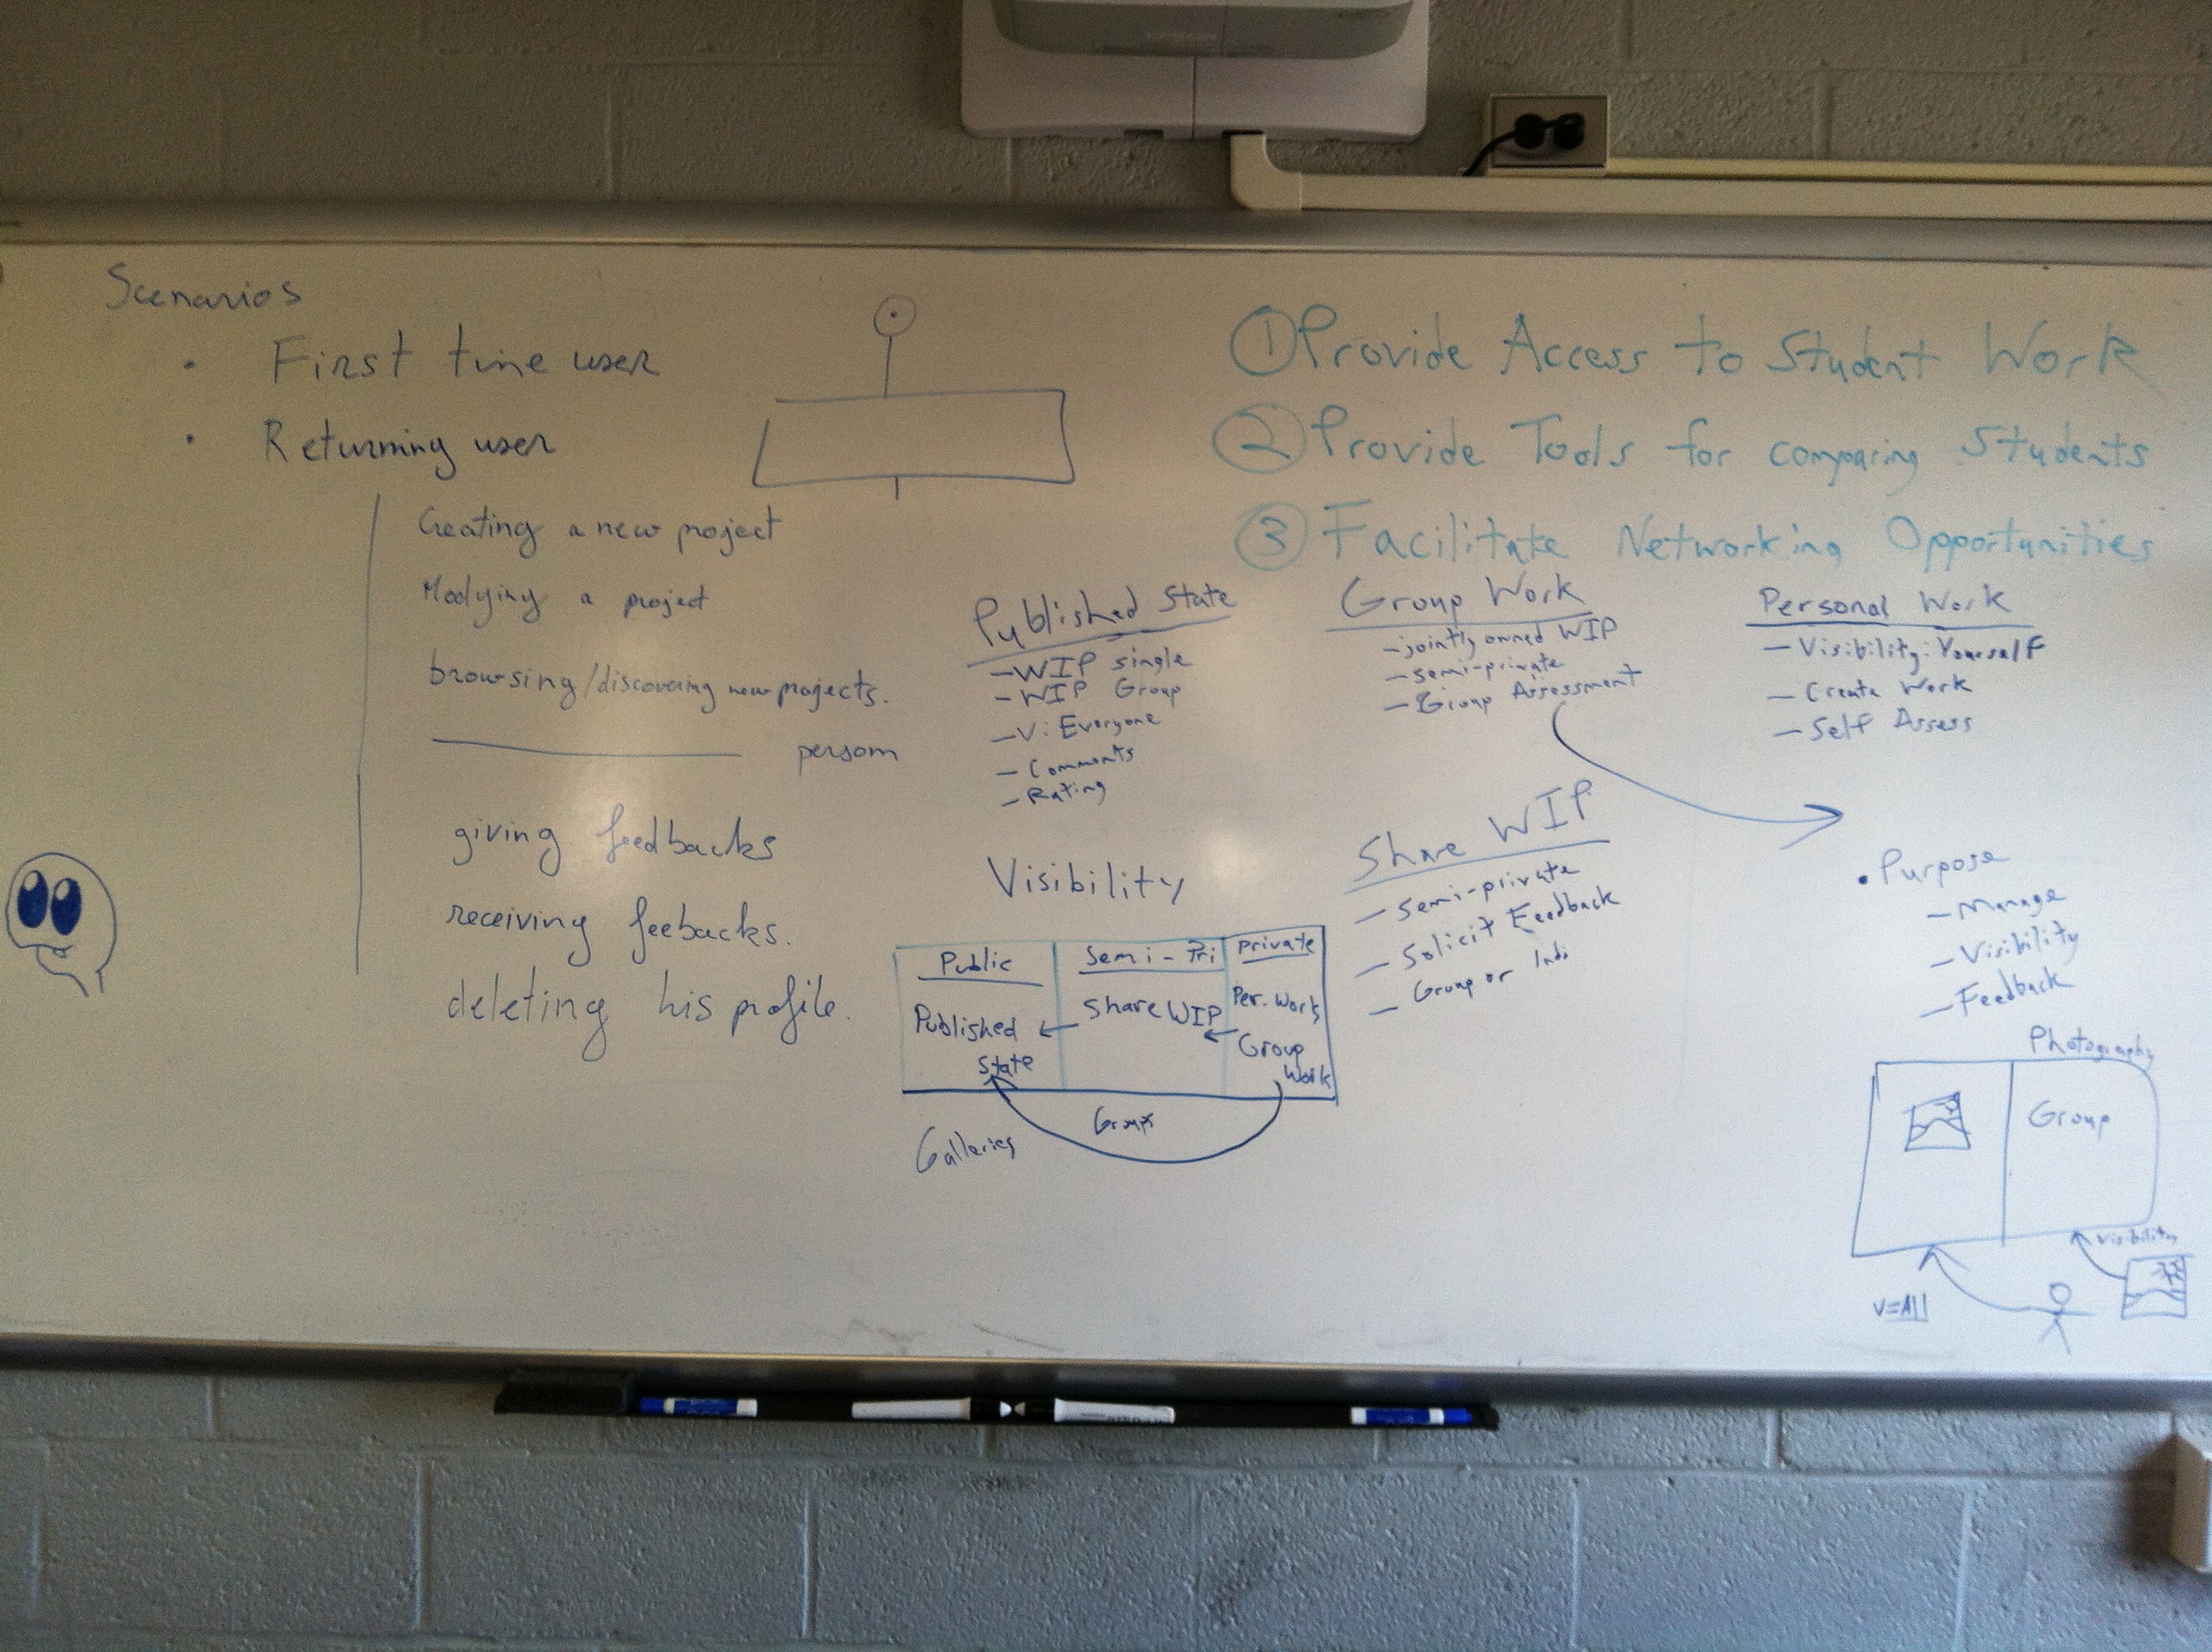 Scenarios
• First time user
• Returning user
Creating a new project
Modying a project
browsing/discovering new projects.
persom
giving feedbacks
receiving feebacks.
deleting his profile.
① Provide Access to Student Work
② Provide Tools for comparing Students
③ Facilitate Networking Opportunities
Published State
- WIP single
- WIP Group
- V: Everyone
- Comments
- Rating
Group Work
- jointly owned WIP
- semi-private
- Group Assessment
Personal Work
- Visibility: Yourself
- Create Work
- Self Assess
Share WIP
- semi-private
- Solicit Feedback
- Group or Indi
• Purpose
- Manage
- Visibility
- Feedback
Visibility
Public
Semi-Pri
private
Published
State
Share WIP
Per. Work
Group
Work
Galleries
Group
Photography
Group
Visibility
V=All